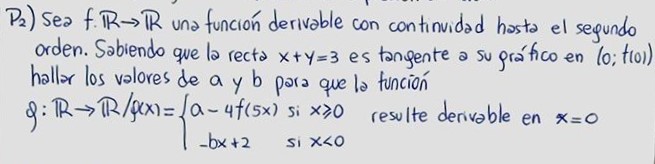 P₂) Sea f: ℝ→ℝ una función derivable con continuidad hasta el segundo
orden. Sabiendo que la recta x+y=3 es tangente a su gráfico en (0; f(0))
hallar los valores de a y b para que la función
g: ℝ→ℝ/g(x)= { a - 4f(5x) si x≥0 resulte derivable en x=0
-bx+2 si x<0